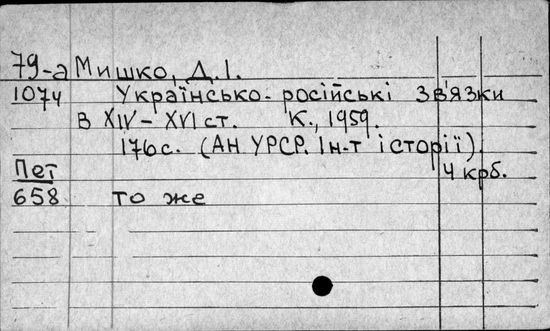 79-а Мишко, Д.І.
1074 Українсько-російські зв'язки
в XIV-XVI ст. К., 1959.
176 с. (АН УРСР. Ін-т історії).
Пет 4 крб.
658 то же